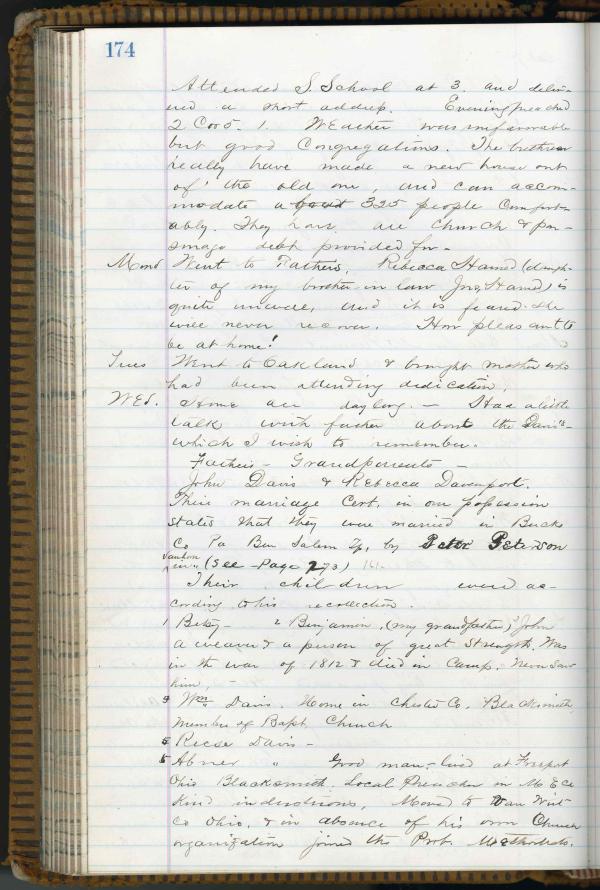 174
Attended S. School at 3. and deliv-
ered a short address. Evening preached
2 Cor 5. 1. Weather was unfavorable
but good Congregations. The brethren
really have made a new house out
of the old one, and can accom-
modate about 325 people comfort-
ably. They have all Church & par-
sonage debt provided for-
Mond Went to Fathers, Rebecca Hamd (daugh-
ter of my brother-in law Jno. Hamd) is
quite unwell, and it is feared she
will never recover. How pleasant to
be at home!
Tues Went to Oakland & brought mother who
had been attending dedication.
Wed. Home all day long. - Had a little
talk with father about the Davis's
which I wish to remember.
Father's - Grandparents -
John Davis & Rebecca Davenport.
Their marriage Cert. in our possession
states that they were married in Bucks
Co Pa Ben Salem Tp, by Peter Peterson
(See - Page 273)
Their children were ac-
cording to his recollection.
1 Betsy - 2 Benjamin, (my grandfather) 3 John
a weaver & a person of great strength, Was
in the war of 1812 & died in Camp. Never saw
him, -
3 Wm Davis. Home in Chester Co. Blacksmith,
Member of Bapt Church
4 Reese Davis -
5 Abner " Good man, - lived at Freeport
Ohio Blacksmith. Local Preacher in M E Ch
Kind industrious, Moved to Van Wert
Co Ohio, & in absence of his own Church
organization joined the Prot. Methodists.